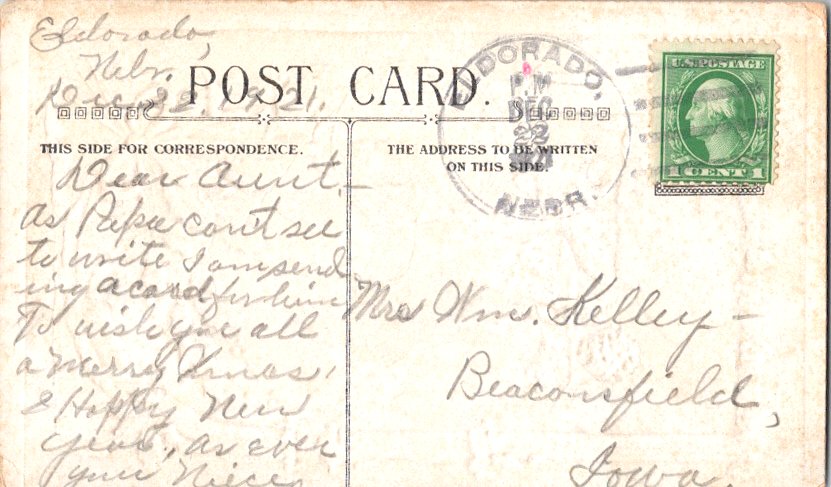 Eldorado,
Nebr.
Dec. 22. 1921.
POST CARD.
THIS SIDE FOR CORRESPONDENCE.
THE ADDRESS TO BE WRITTEN
ON THIS SIDE.
ELDORADO,
P.M
DEC
22
1921
NEBR.
U.S. POSTAGE
1 CENT 1
Dear Aunt,—
as Papa cant see
to write I am send
ing a card for him
To wish you all
a Merry Xmas,
& Happy New
year, as ever
your Niece
Mrs Wm. Kelley —
Beaconsfield,
Iowa.